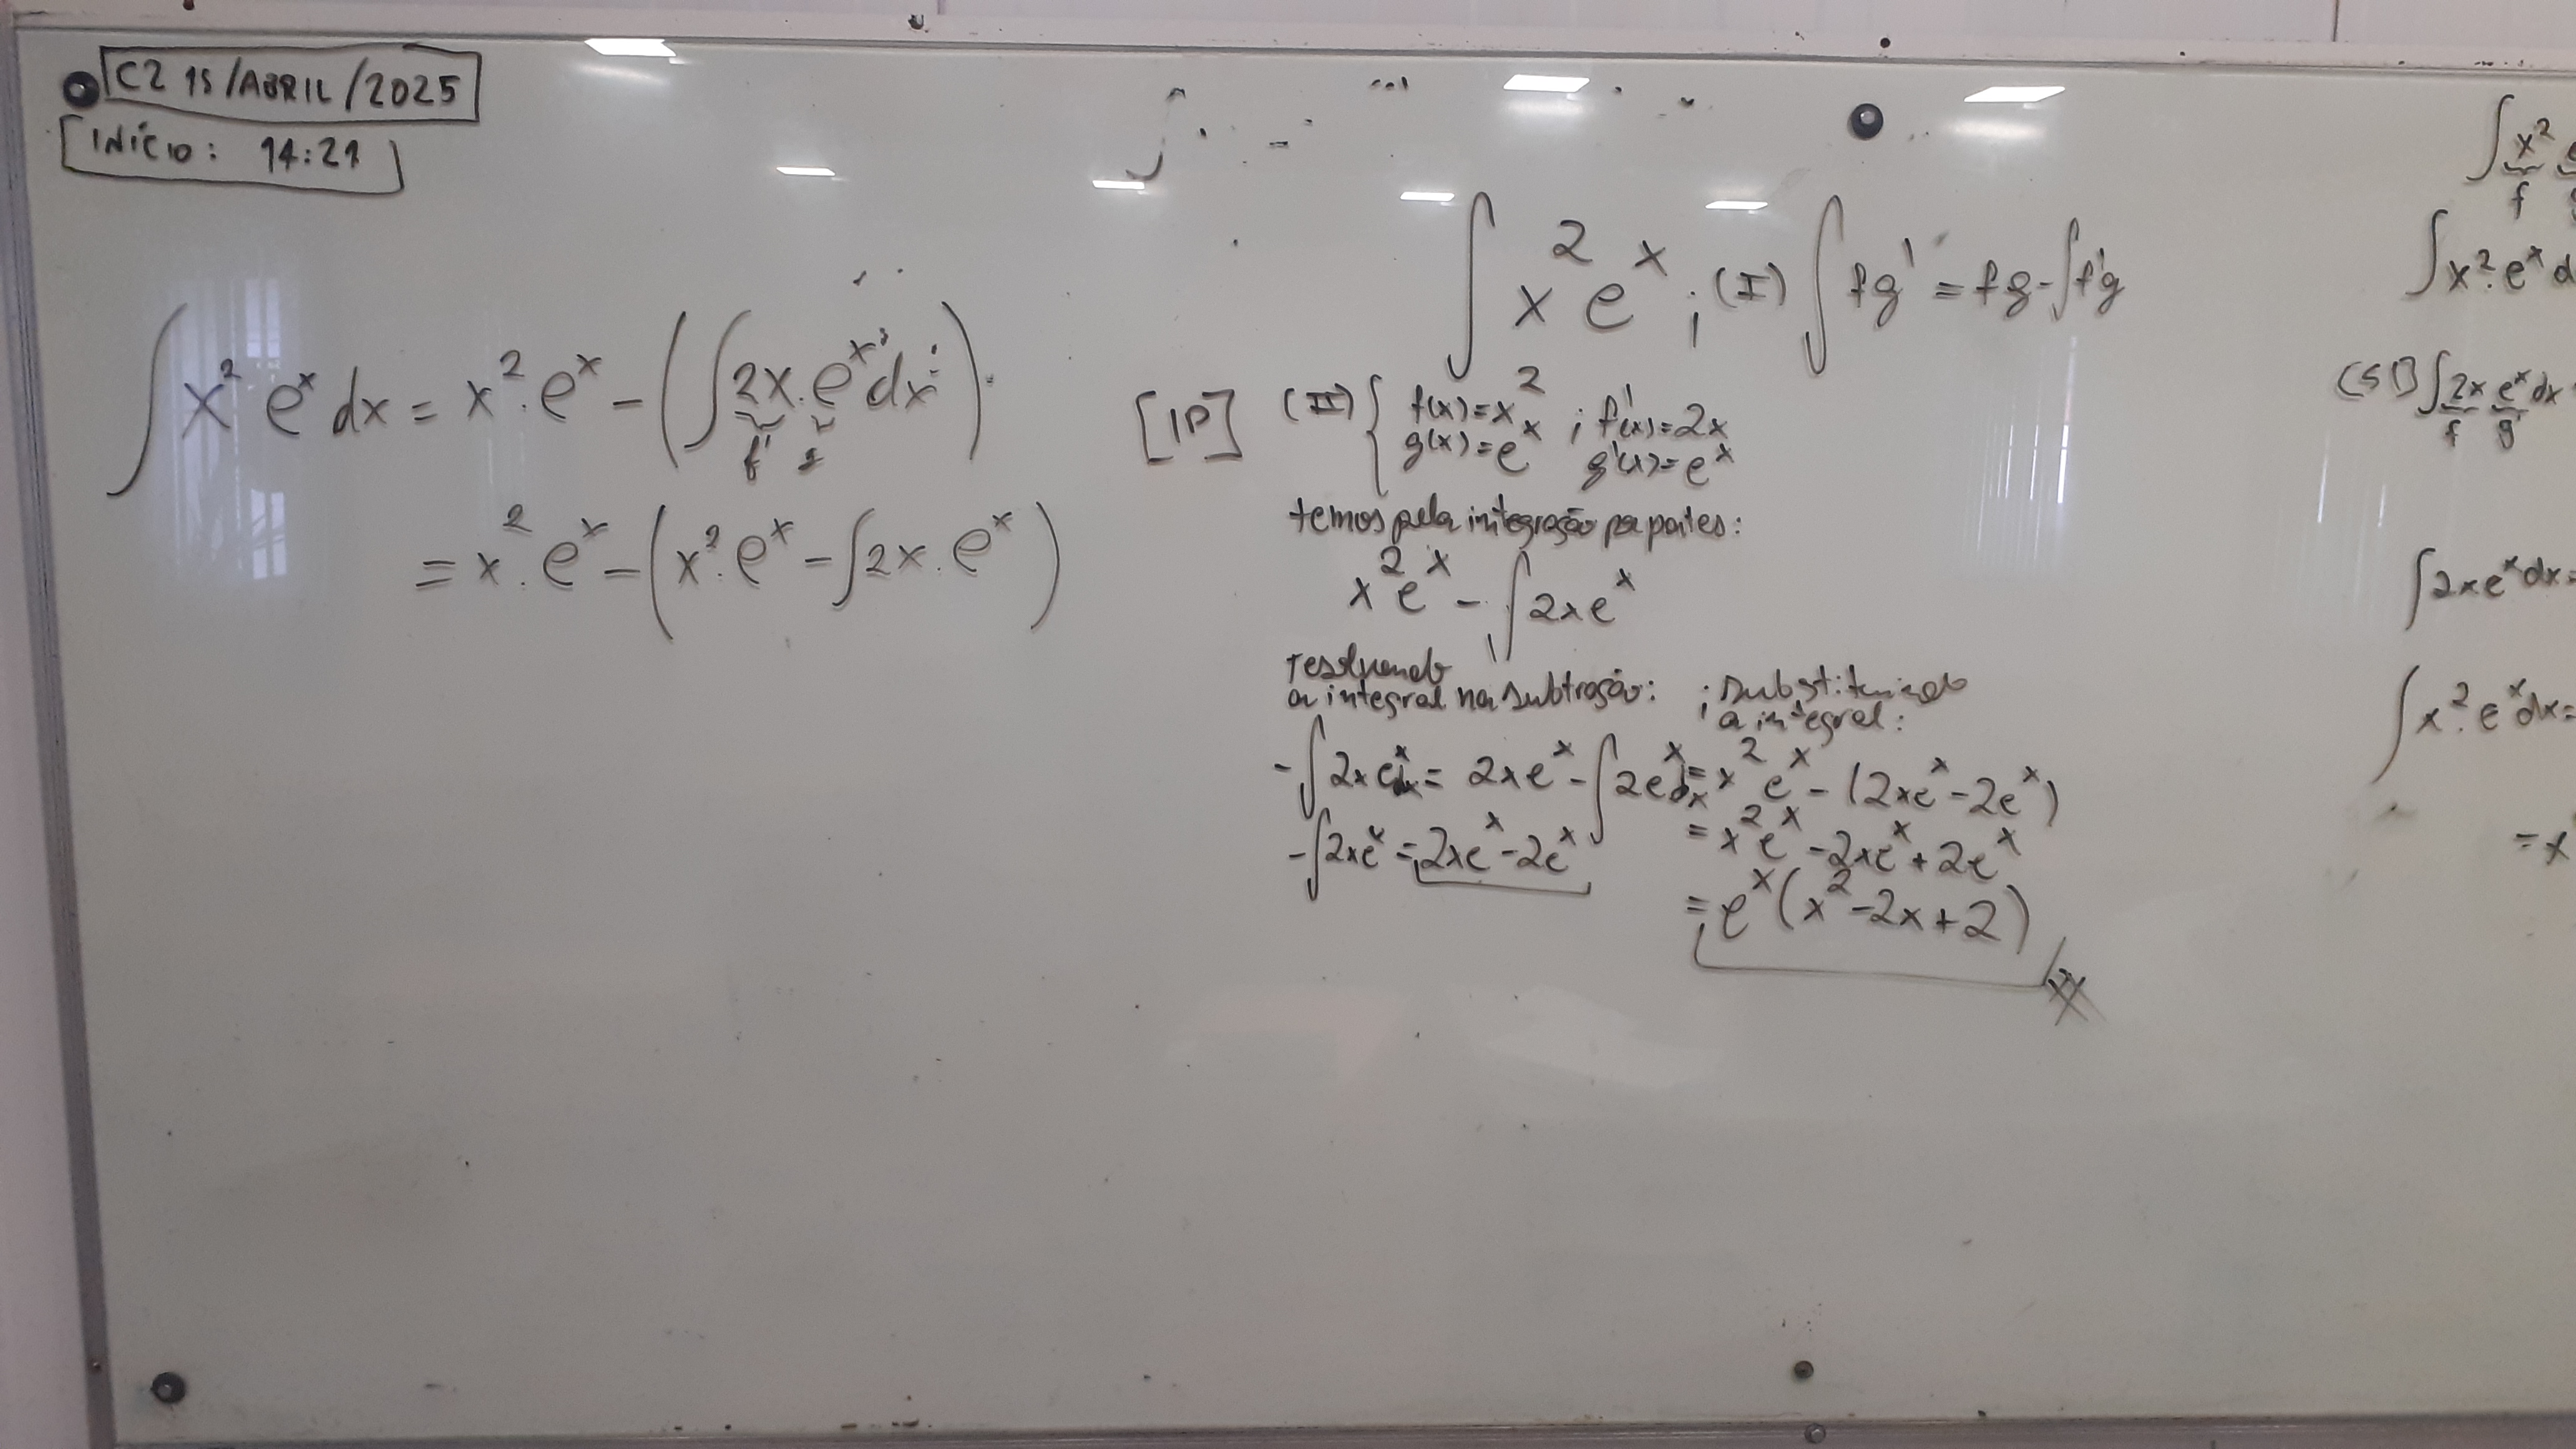 C2 15/ABRIL/2025
INÍCIO: 14:21
∫ x² eˣ dx = x².eˣ - (∫ 2x.eˣ dx)
f' g
= x².eˣ - (x².eˣ - ∫2x.eˣ)
∫ x² eˣ ; (I) ∫ fg' = fg - ∫f'g
[IP] (II) { f(x)=x² ; f'(x)=2x
g(x)=eˣ g'(x)=eˣ
temos pela integração por partes:
x²eˣ - ∫2xeˣ
resolvendo
a integral na subtração:
-∫2xeˣdx = 2xeˣ - ∫2eˣdx
-∫2xeˣ = 2xeˣ - 2eˣ
; substituindo
; a integral:
= x²eˣ - (2xeˣ - 2eˣ)
= x²eˣ - 2xeˣ + 2eˣ
= eˣ(x² - 2x + 2)
∫ x²
f
∫x².eˣ d
(SI) ∫2x eˣ dx
f g'
∫2xeˣdx=
∫x².eˣdx=
= x